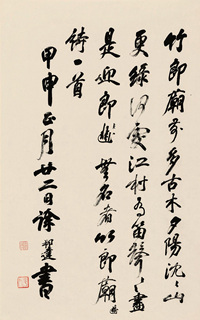 竹郎廟前多古木夕陽沈〻山
更綠何處江村有笛聲〻〻盡
是迎郎曲 無名者竹郎廟
詩一首
甲申正月廿二日徐書